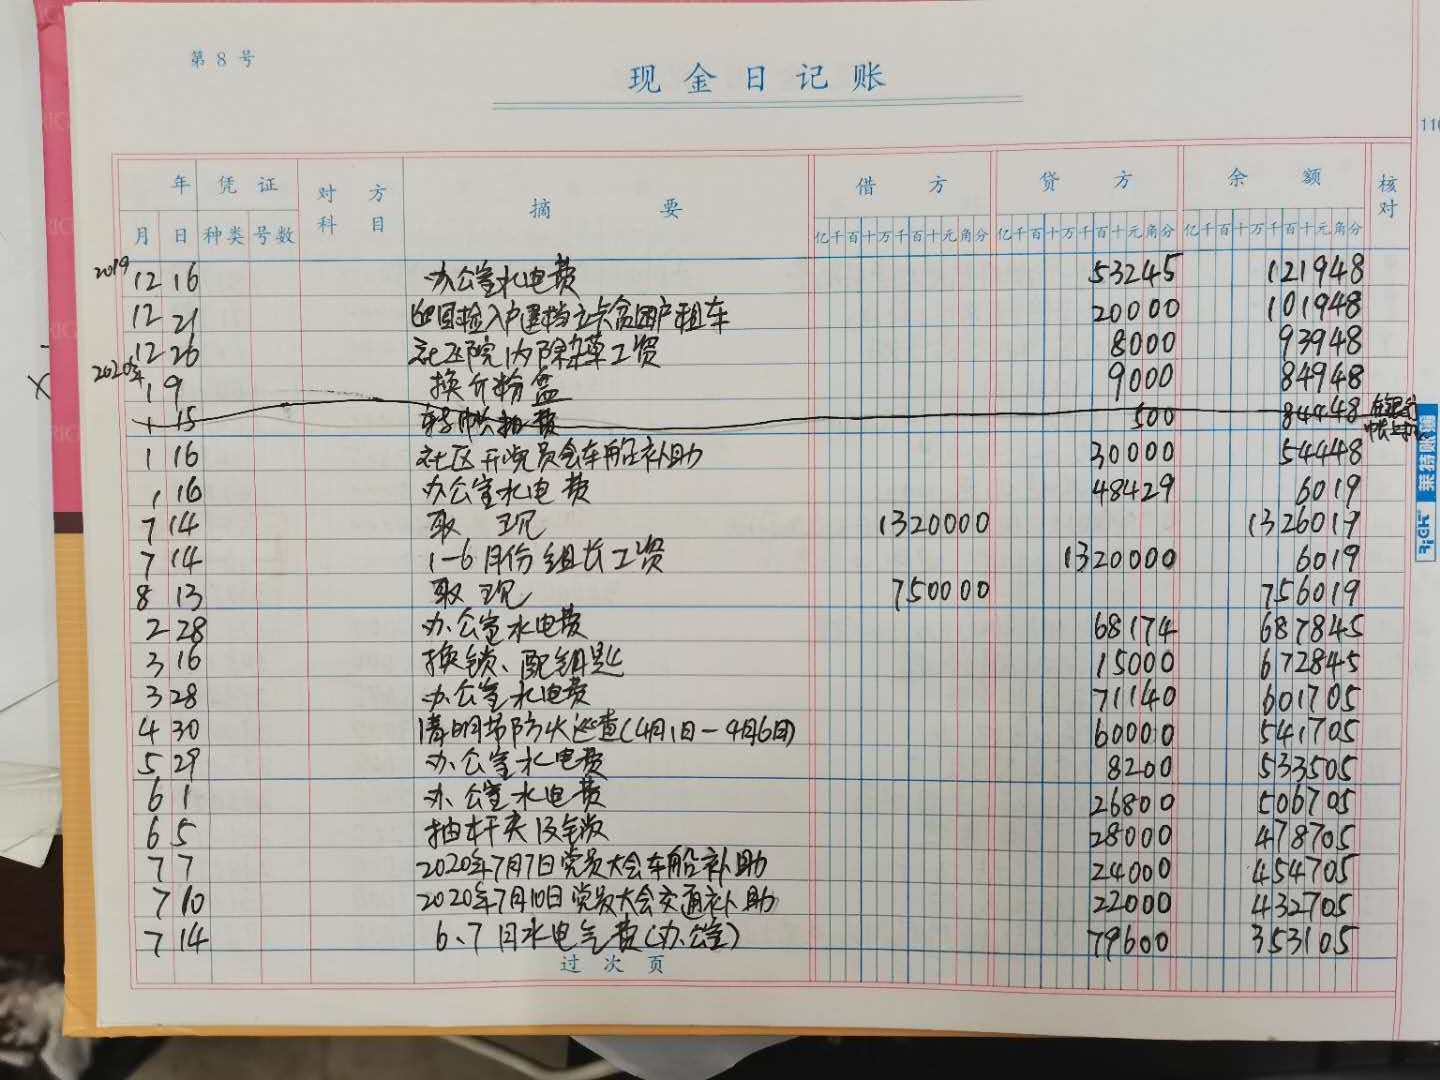 第 8 号
现金日记账
116
年 凭证 对方 摘要 借方 贷方 余额 核对
月 日 种类 号数 科目 亿千百十万千百十元角分 亿千百十万千百十元角分 亿千百十万千百十元角分
2019 12 16 办公室水电费 53245 121948
12 21 入户建档立卡贫困户租车 20000 101948
12 26 社区院内除草工资 8000 93948
2020年 1 9 换介粉盒 9000 84948
1 15 转账抽费 500 84448
1 16 社区开党员会车船补助 30000 54448
1 16 办公室水电费 48429 6019
7 14 取现 1320000 1326019
7 14 1-6月份组长工资 1320000 6019
8 13 取现 750000 756019
2 28 办公室水电费 68174 687845
3 16 换锁、配钥匙 15000 672845
3 28 办公室水电费 71140 601705
4 30 清明节防火巡查(4月1日-4月6日) 60000 541705
5 29 办公室水电费 8200 533505
6 1 办公室水电费 26800 506705
6 5 抽杆夹及锁 28000 478705
7 7 2020年7月7日党员大会车船补助 24000 454705
7 10 2020年7月10日党员大会交通补助 22000 432705
7 14 6、7月水电气费(办公室) 79600 353105
过次页
莱特账簿